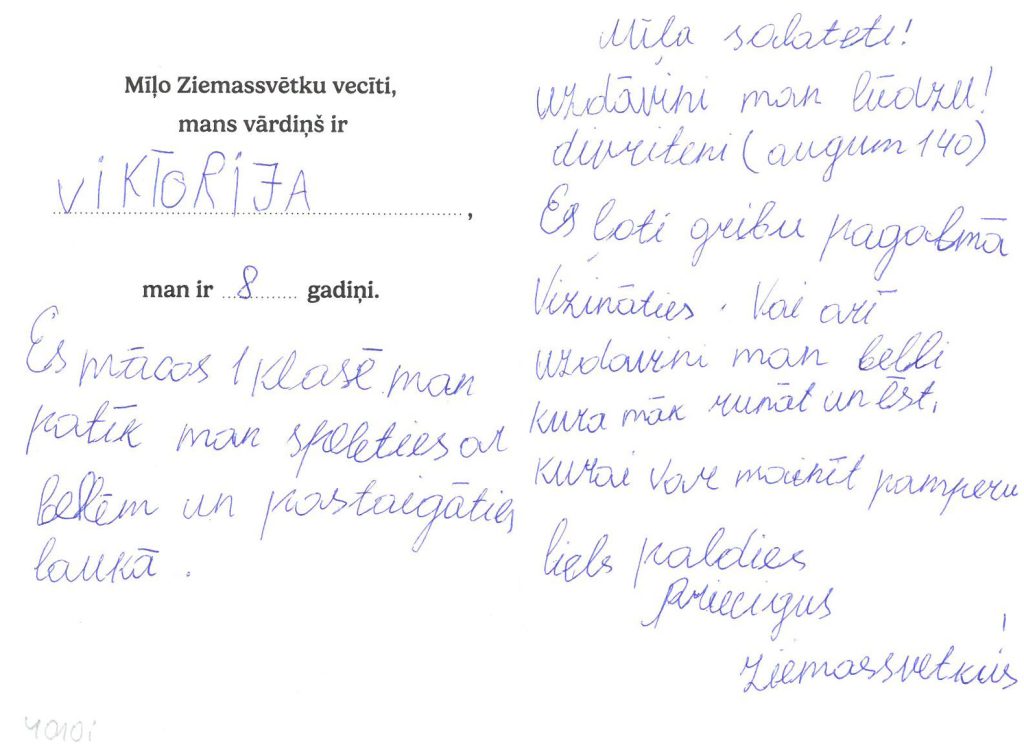 Mīļo Ziemassvētku vecīti,
mans vārdiņš ir
VIKTORIJA,
man ir 8 gadiņi.
Es mācos 1 klasē. man
patīk man spēlēties ar
lellēm un pastaigāties
laukā.
Mīļa salatēti!
uzdāvini man lūdzu!
divriteni (augum 140)
Es ļoti gribu pagalmā
Vizināties. Vai arī
uzdavini man lelli
kura māk runāt un ēst,
kurai var mainīt pamperu
liels paldies
priecigus
ziemassvetkus!